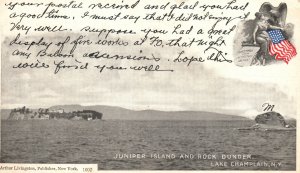 your postal received and glad you had
a good time, I must say that I did not enjoy it
Very well. suppose you had a great
display of fire works at N, that night
any Baloon ascensions. hope this
will find you well
M
JUNIPER ISLAND AND ROCK DUNDER
LAKE CHAMPLAIN, N.Y.
Arthur Livingston, Publisher, New York.